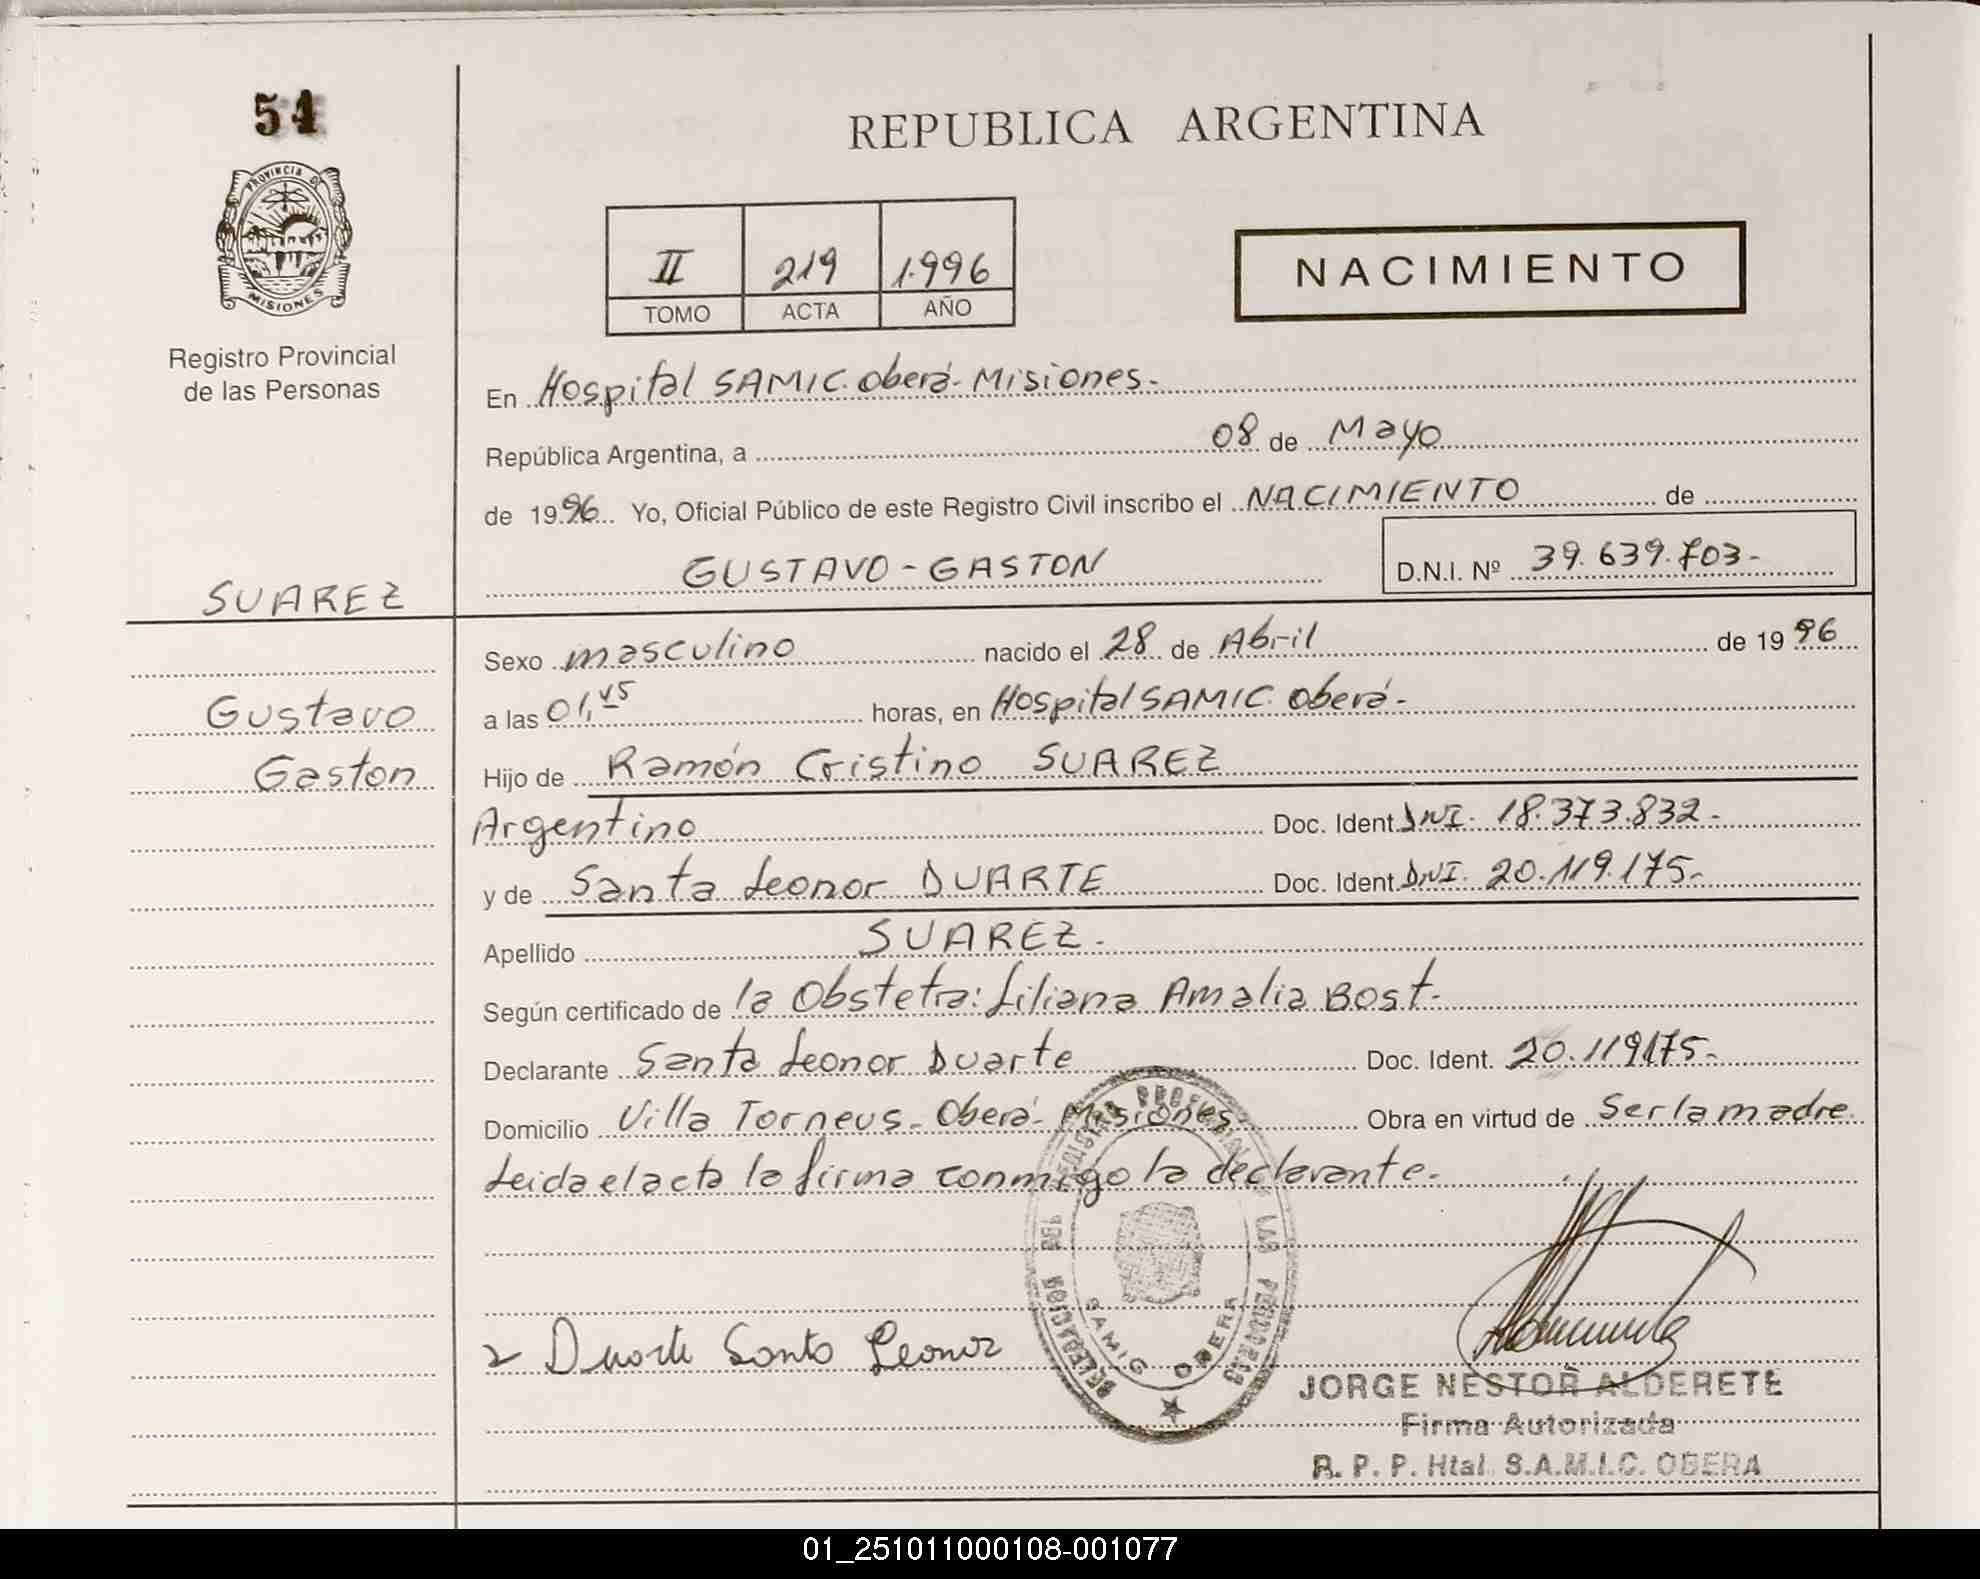 54
PROVINCIA DE
MISIONES
Registro Provincial
de las Personas
REPUBLICA ARGENTINA
II 219 1.996
TOMO ACTA AÑO
NACIMIENTO
En Hospital SAMIC. Oberá- Misiones.-
República Argentina, a 08 de Mayo
de 1996 Yo, Oficial Público de este Registro Civil inscribo el NACIMIENTO de
GUSTAVO - GASTON D.N.I. Nº 39.639.703-
SUAREZ
Gustavo
Gaston
Sexo masculino nacido el 28 de Abril de 1996
a las 01,45 horas, en Hospital SAMIC. Oberá-
Hijo de Ramón Cristino SUAREZ
Argentino Doc. Ident DNI. 18.373.832-
y de Santa Leonor DUARTE Doc. Ident DNI. 20.119.175-
Apellido SUAREZ-
Según certificado de la Obstetra: Liliana Amalia Bost-
Declarante Santa Leonor Duarte Doc. Ident. 20.119175-
Domicilio Villa Torneus- Oberá- Misiones Obra en virtud de Ser la madre
Leida el acta la firma conmigo la declarante-
Duarte Santa Leonor
DELEGACION DEL REGISTRO PROVINCIAL DE LAS PERSONAS
SAMIC OBERA
JORGE NESTOR ALDERETE
Firma Autorizada
R. P. P. Htal. S.A.M.I.C. OBERA
01_251011000108-001077